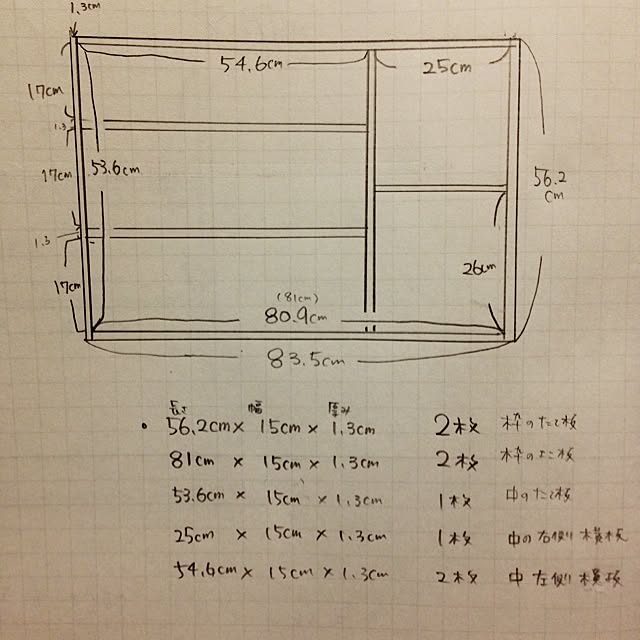 1.3cm
54.6cm
25cm
17cm
1.3
17cm
53.6cm
56.2
cm
1.3
17cm
26cm
(81cm)
80.9cm
83.5cm
長さ 幅 厚み
• 56.2cm× 15cm × 1.3cm 2枚 枠のたて板
81cm × 15cm × 1.3cm 2枚 枠のよこ板
53.6cm × 15cm × 1.3cm 1枚 中のたて板
25cm × 15cm × 1.3cm 1枚 中の右側横板
54.6cm × 15cm × 1.3cm 2枚 中左側横板